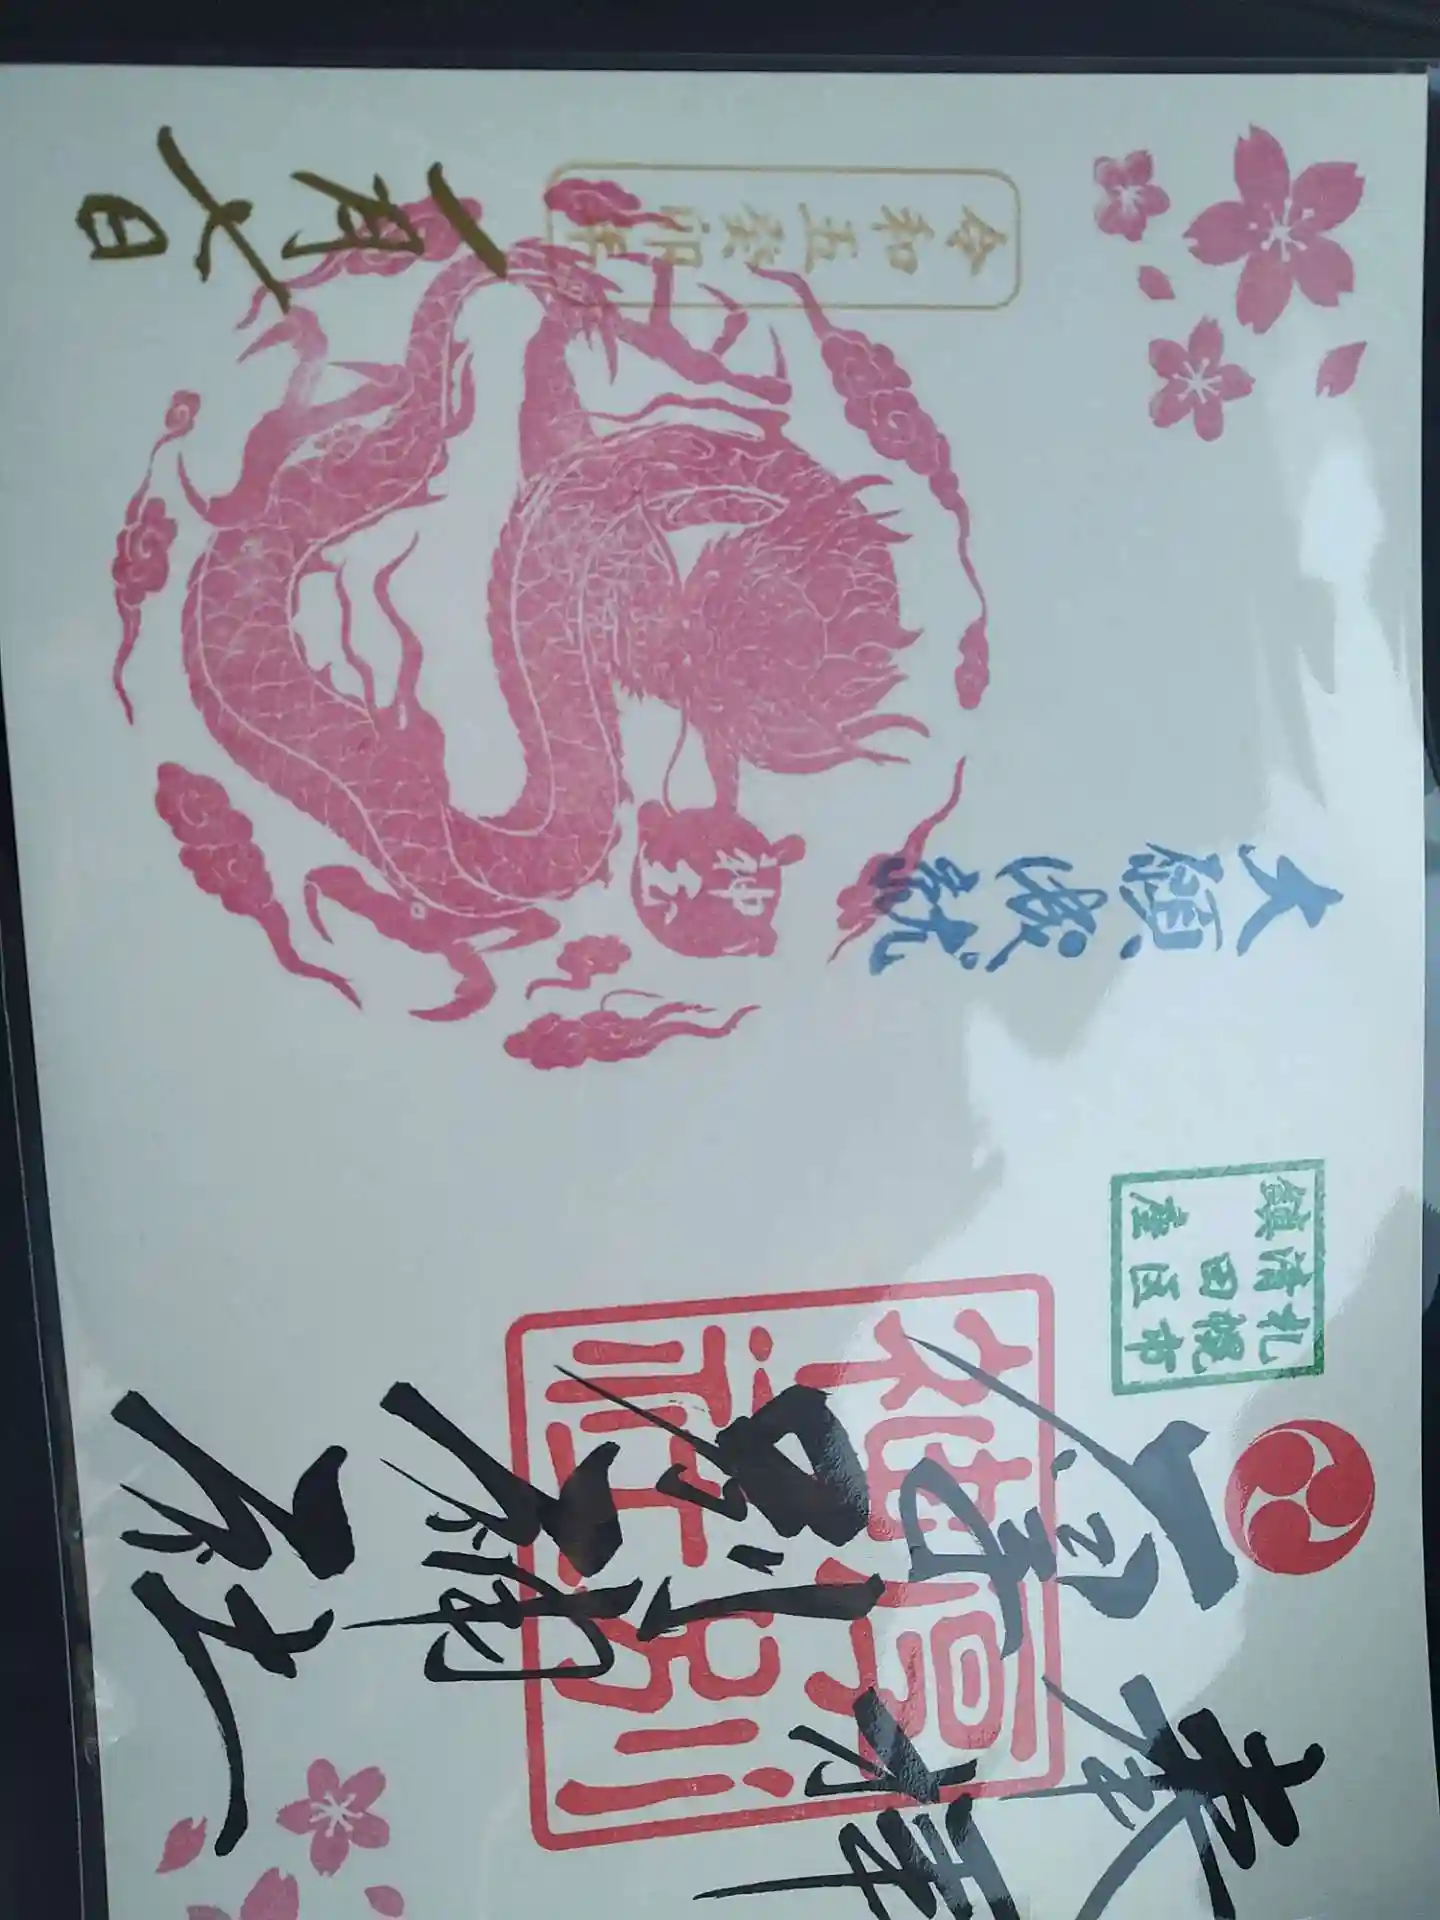 奉拝
厚別神社
厚別
神社
札幌市
清田区
鎮座
大願成就
神玉
令和五癸卯年
一月 日